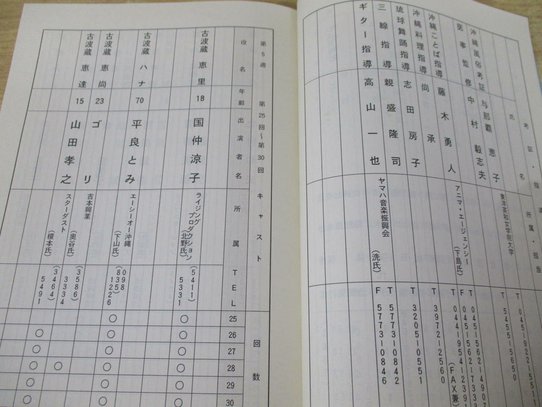 考証・指導
氏名
所属・担当
沖縄風俗考証
与那覇 恵子
東洋英和女学院大学
T 5455-5650
医事監修
中村 毅志夫
沖縄ことば指導
藤木 勇人
アニマ・エージェンシー
(下島氏)
(FAX兼)
沖縄料理指導
尚 承
T 3972-2560
琉球舞踊指導
志田 房子
T 3205-0551
三線指導
親盛 隆司
T 5773-0842
ギター指導
高山 一也
ヤマハ音楽振興会
(洗氏)
F 5773-0846
第5週 第25回~第30回 キャスト
役名
年齢
出演者名
所属
TEL
回数
25
26
27
28
29
30
古波蔵 恵里
18
国仲涼子
ライジング
プロダクション
(北野氏)
(5411)
5331
古波蔵 ハナ
70
平良とみ
エーシーオー沖縄
(下山氏)
098
(835)
8122
古波蔵 恵尚
23
ゴリ
吉本興業
(奥谷氏)
(3586)
3334
古波蔵 恵達
15
山田孝之
スターダスト
(榎本氏)
(3464)
5491